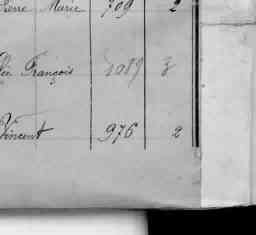 Pierre Marie 709 2
François 1089 3
Vincent 976 2